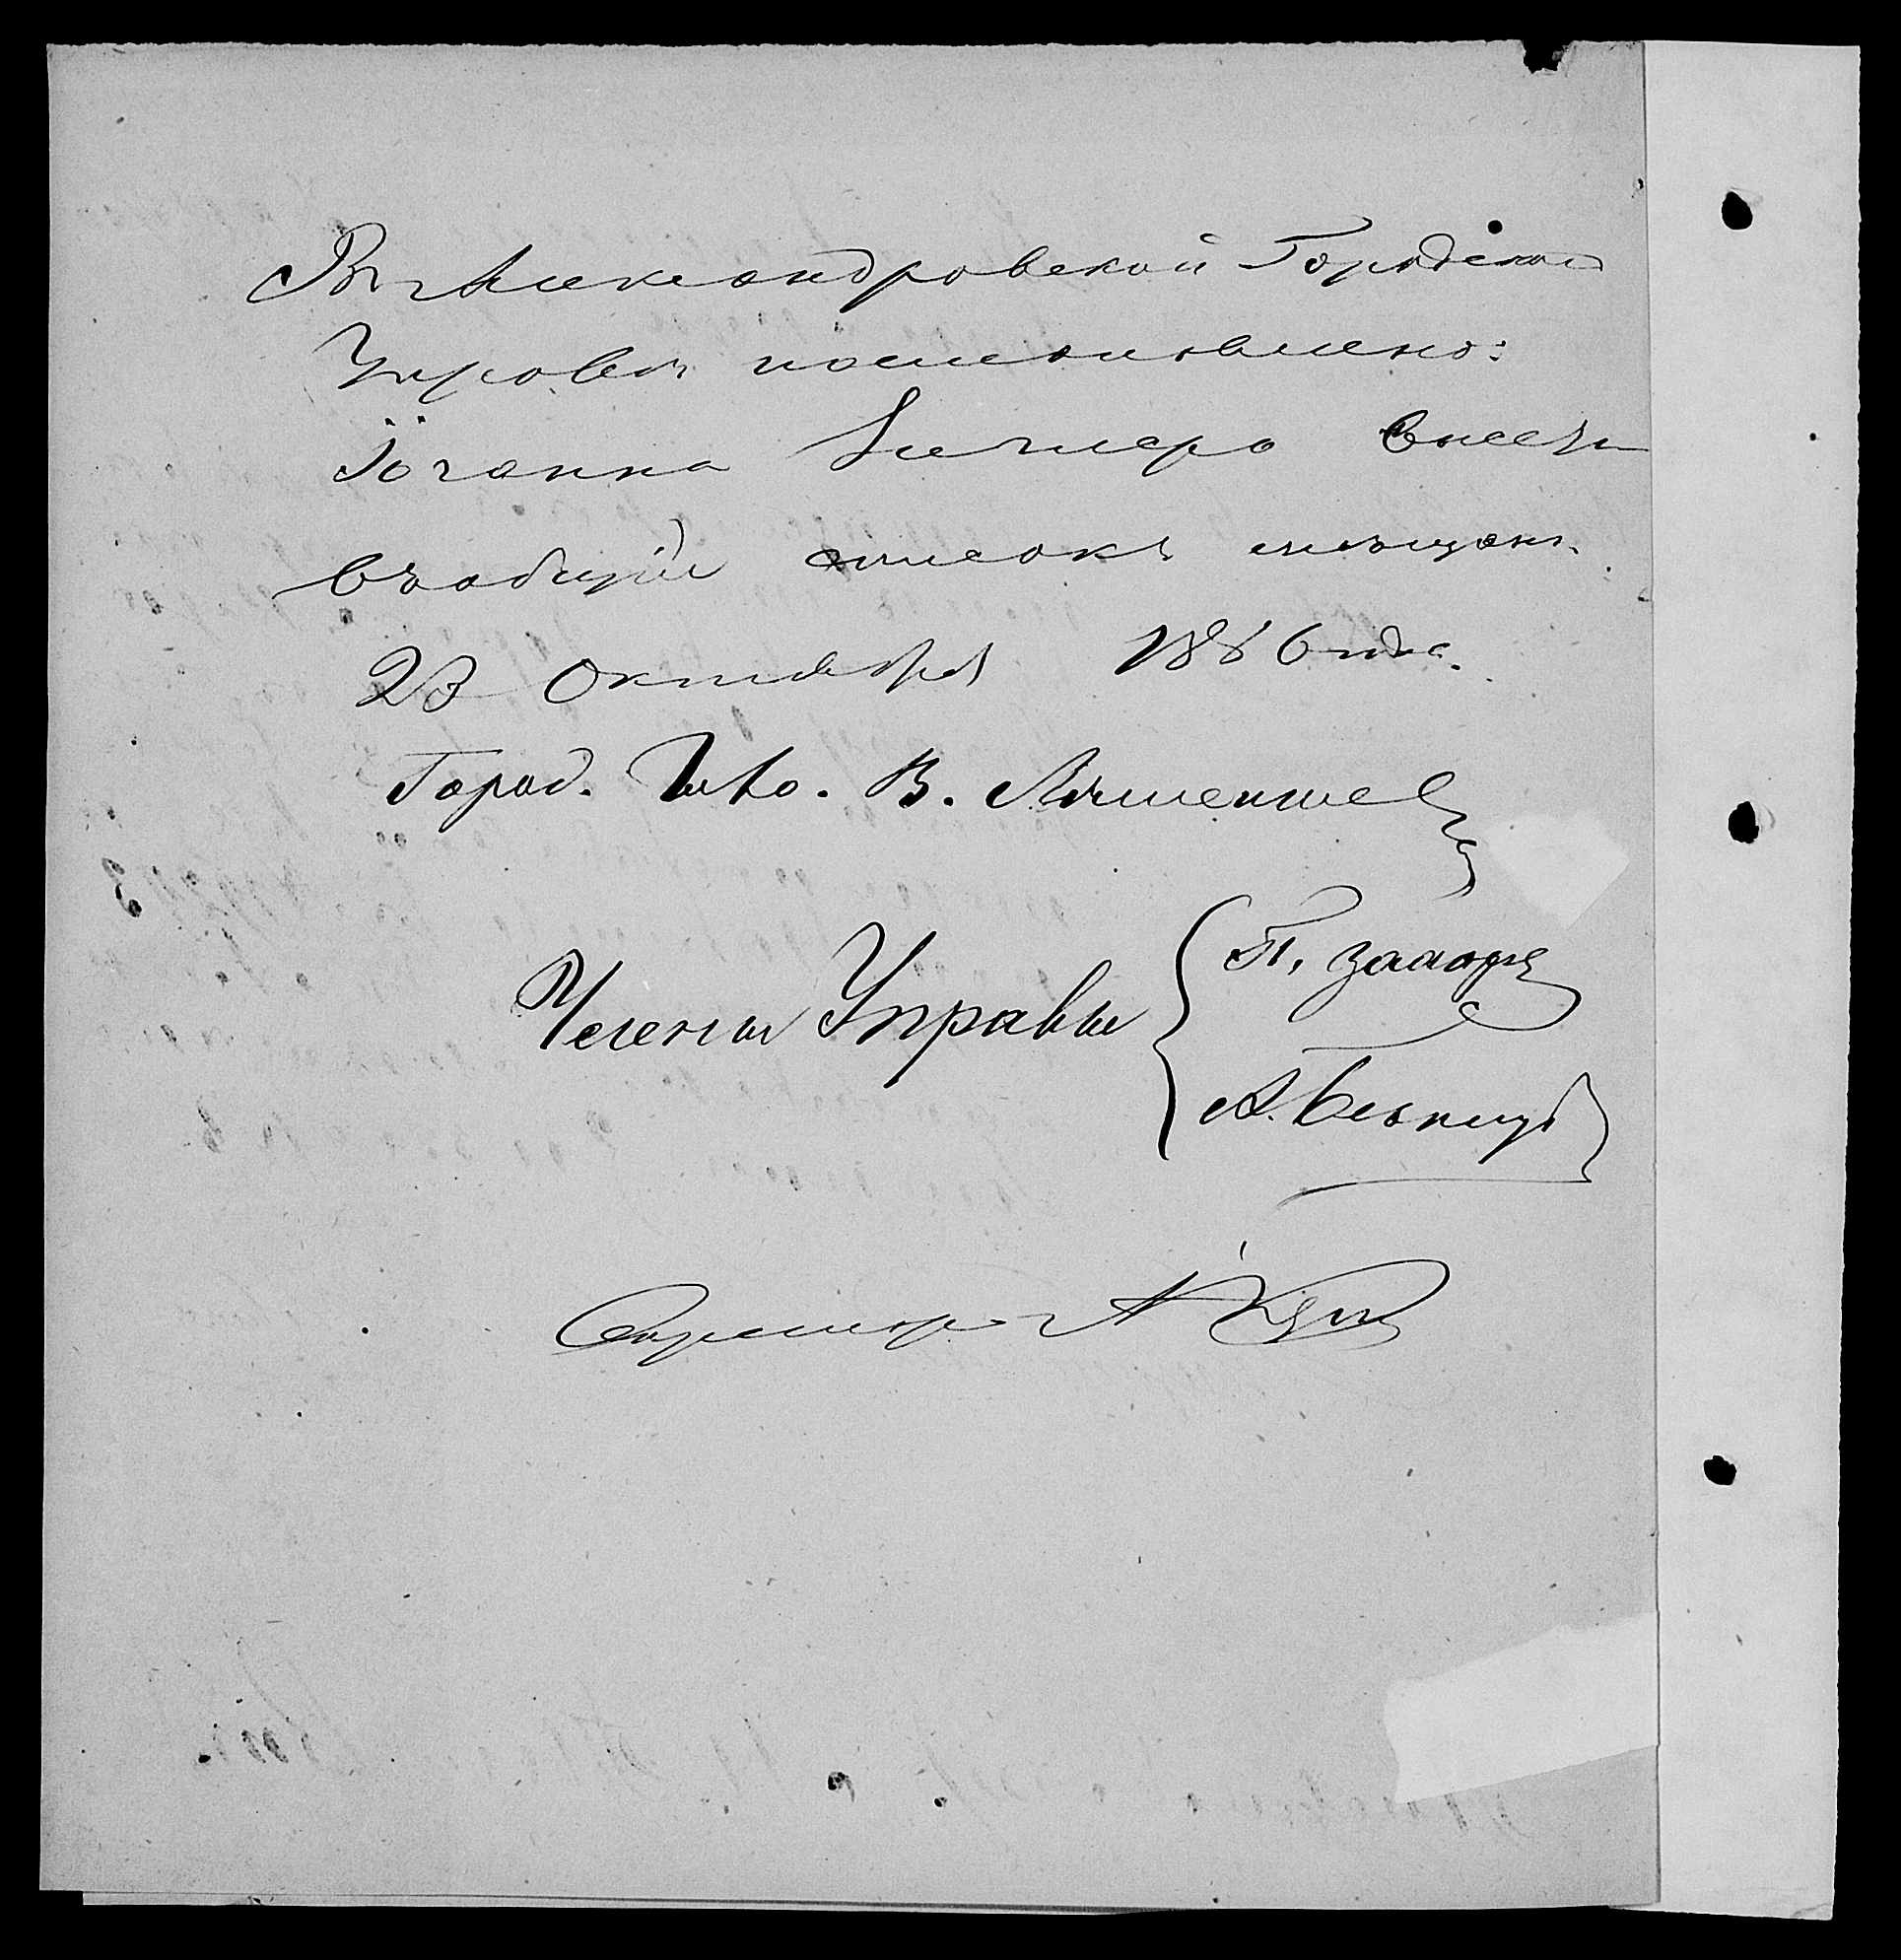 Въ Александровской Городской
Управѣ постановлено:
Іоганна внести
въ общій списокъ мѣщанъ.
23 Октября 1886 года.
Город. В.
Члены Управы П.
А.
Секретарь А